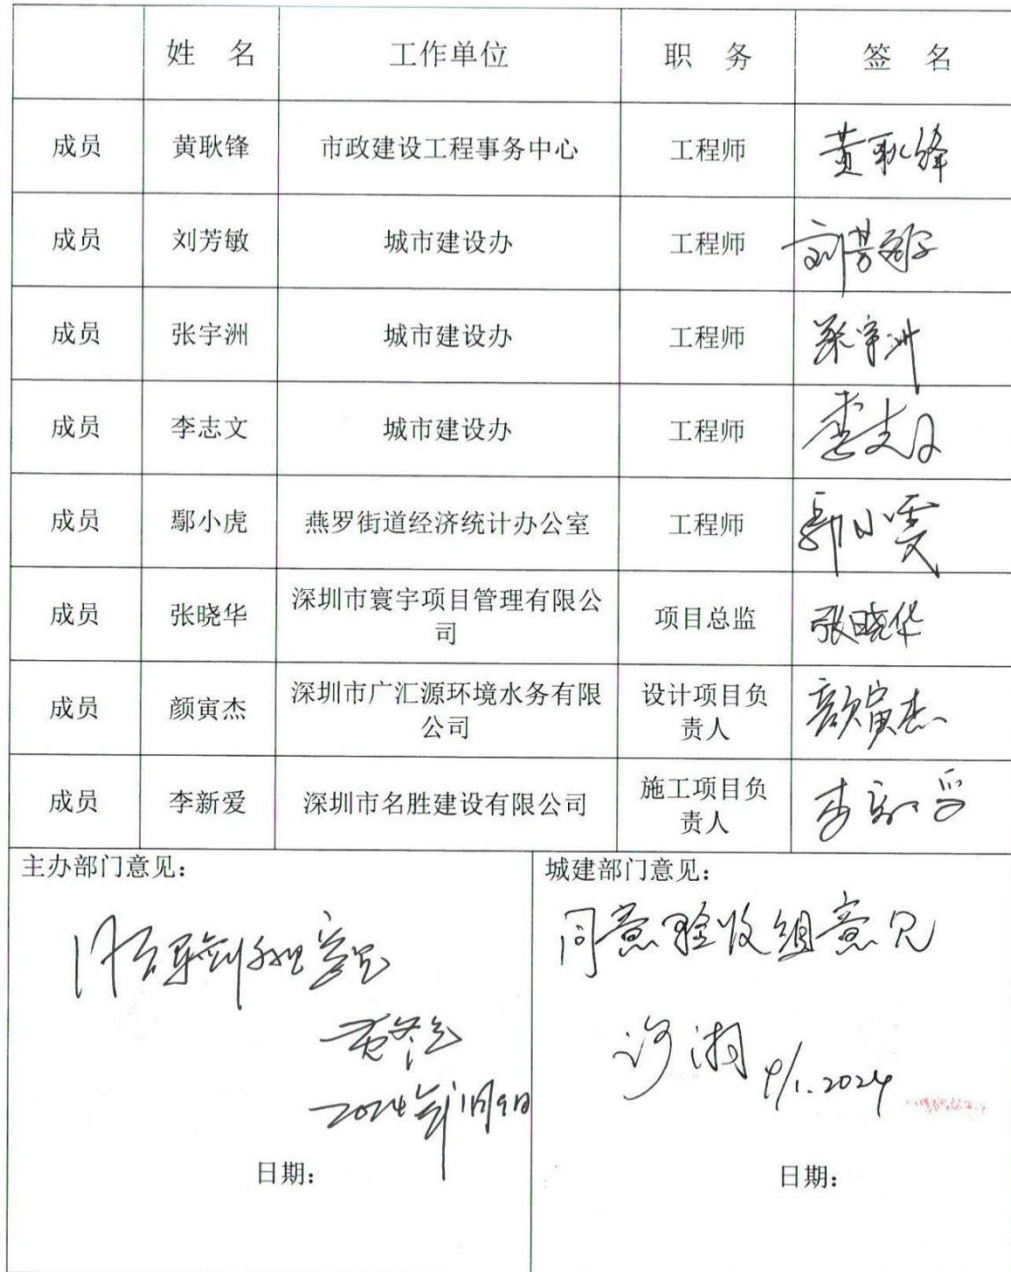 姓 名 工作单位 职 务 签 名
成员 黄耿锋 市政建设工程事务中心 工程师 黄耿锋
成员 刘芳敏 城市建设办 工程师 刘芳敏
成员 张宇洲 城市建设办 工程师 张宇洲
成员 李志文 城市建设办 工程师 李志文
成员 鄢小虎 燕罗街道经济统计办公室 工程师 鄢小虎
成员 张晓华 深圳市寰宇项目管理有限公
司 项目总监 张晓华
成员 颜寅杰 深圳市广汇源环境水务有限
公司 设计项目负
责人 颜寅杰
成员 李新爱 深圳市名胜建设有限公司 施工项目负
责人 李新爱
主办部门意见：
2024年1月9日
日期：
城建部门意见：
同意验收组意见
许湘 9/1.2024
日期：